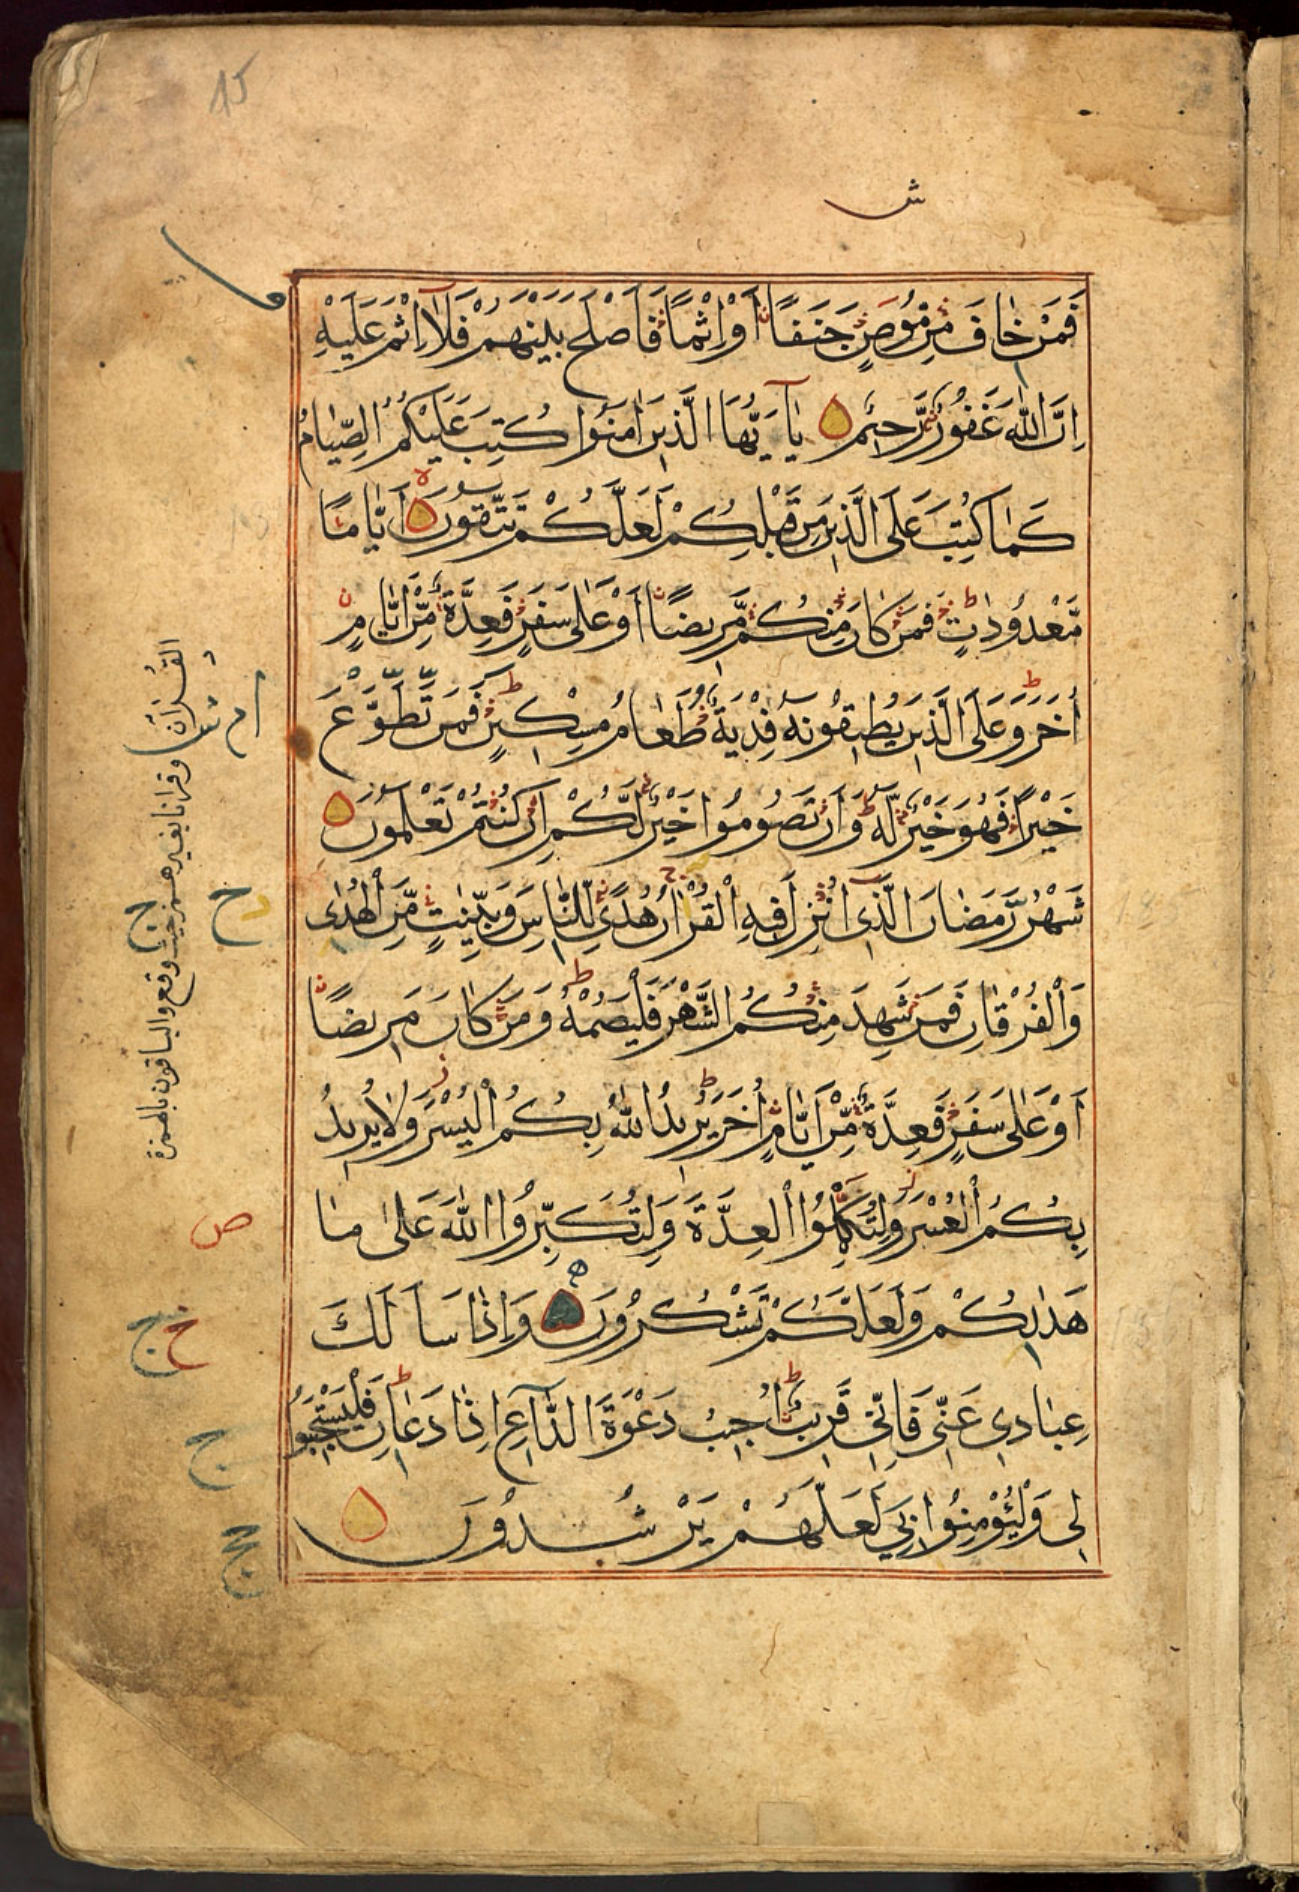 15
ش
فَمَنْ خَافَ مِنْ مُوصٍ جَنَفًا أَوْ إِثْمًا فَأَصْلَحَ بَيْنَهُمْ فَلَا إِثْمَ عَلَيْهِ
إِنَّ اللَّهَ غَفُورٌ رَّحِيمٌ يَا أَيُّهَا الَّذِينَ آمَنُوا كُتِبَ عَلَيْكُمُ الصِّيَامُ
كَمَا كُتِبَ عَلَى الَّذِينَ مِن قَبْلِكُمْ لَعَلَّكُمْ تَتَّقُونَ أَيَّامًا
مَّعْدُودَاتٍ فَمَن كَانَ مِنكُم مَّرِيضًا أَوْ عَلَى سَفَرٍ فَعِدَّةٌ مِّنْ أَيَّامٍ
أُخَرَ وَعَلَى الَّذِينَ يُطِيقُونَهُ فِدْيَةٌ طَعَامُ مِسْكِينٍ فَمَن تَطَوَّعَ
خَيْرًا فَهُوَ خَيْرٌ لَّهُ وَأَن تَصُومُوا خَيْرٌ لَّكُمْ إِن كُنتُمْ تَعْلَمُونَ
شَهْرُ رَمَضَانَ الَّذِي أُنزِلَ فِيهِ الْقُرْآنُ هُدًى لِّلنَّاسِ وَبَيِّنَٰتٍ مِّنَ الْهُدَى
وَالْفُرْقَانِ فَمَن شَهِدَ مِنكُمُ الشَّهْرَ فَلْيَصُمْهُ وَمَن كَانَ مَرِيضًا
أَوْ عَلَى سَفَرٍ فَعِدَّةٌ مِّنْ أَيَّامٍ أُخَرَ يُرِيدُ اللَّهُ بِكُمُ الْيُسْرَ وَلَا يُرِيدُ
بِكُمُ الْعُسْرَ وَلِتُكْمِلُوا الْعِدَّةَ وَلِتُكَبِّرُوا اللَّهَ عَلَىٰ مَا
هَدَاكُمْ وَلَعَلَّكُمْ تَشْكُرُونَ وَإِذَا سَأَلَكَ
عِبَادِي عَنِّي فَإِنِّي قَرِيبٌ أُجِيبُ دَعْوَةَ الدَّاعِ إِذَا دَعَانِ فَلْيَسْتَجِيبُوا
لِي وَلْيُؤْمِنُوا بِي لَعَلَّهُمْ يَرْشُدُونَ
القُرَان وقرانا بغير همز حيث وقع والباقون بالهمزة
ص
ج
ج